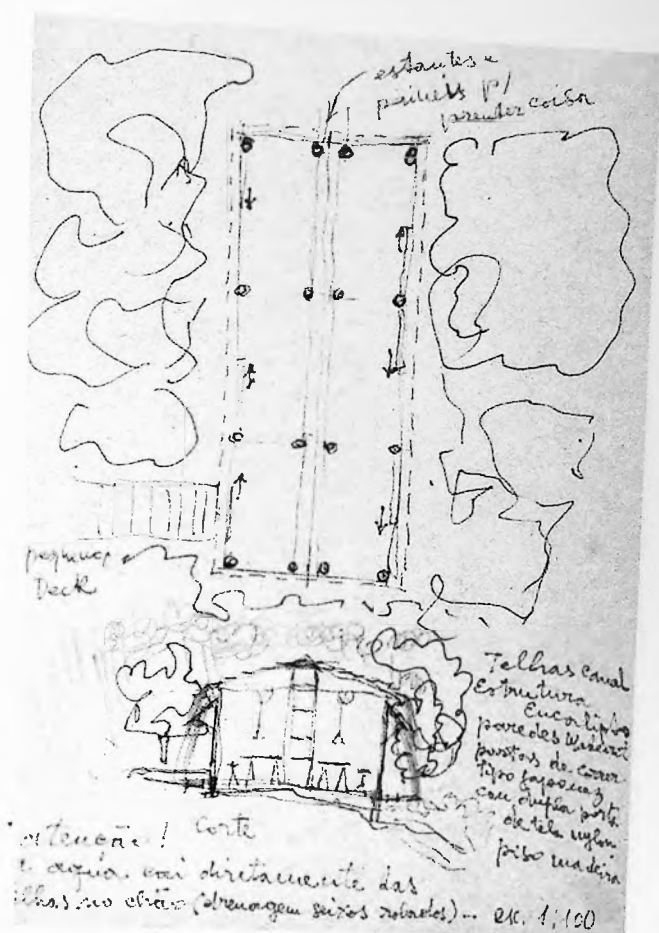 estantes e
paineis p/
prender coisa
pequeno
Deck
Telhas canal
Estrutura
Eucalipto
paredes
portas de correr
tipo japonez
com dupla porta
de tela nylon
piso madeira
corte
atenção!
a agua cai diretamente das
lhas no chão (drenagem seixos rolados) – esc. 1:100